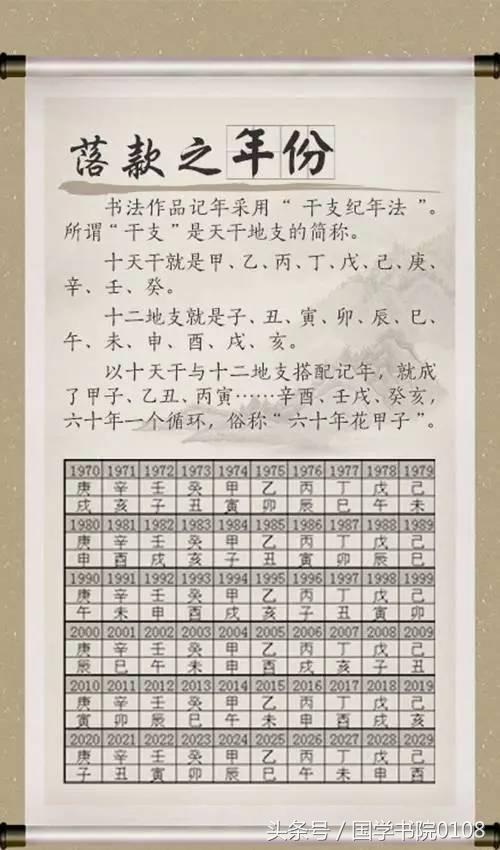 落款之年份
书法作品记年采用“干支纪年法”。
所谓“干支”是天干地支的简称。
十天干就是甲、乙、丙、丁、戊、己、庚、
辛、壬、癸。
十二地支就是子、丑、寅、卯、辰、巳、
午、未、申、酉、戌、亥。
以十天干与十二地支搭配记年，就成
了甲子、乙丑、丙寅……辛酉、壬戌、癸亥，
六十年一个循环，俗称“六十年花甲子”。
1970 1971 1972 1973 1974 1975 1976 1977 1978 1979
庚 辛 壬 癸 甲 乙 丙 丁 戊 己
戌 亥 子 丑 寅 卯 辰 巳 午 未
1980 1981 1982 1983 1984 1985 1986 1987 1988 1989
庚 辛 壬 癸 甲 乙 丙 丁 戊 己
申 酉 戌 亥 子 丑 寅 卯 辰 巳
1990 1991 1992 1993 1994 1995 1996 1997 1998 1999
庚 辛 壬 癸 甲 乙 丙 丁 戊 己
午 未 申 酉 戌 亥 子 丑 寅 卯
2000 2001 2002 2003 2004 2005 2006 2007 2008 2009
庚 辛 壬 癸 甲 乙 丙 丁 戊 己
辰 巳 午 未 申 酉 戌 亥 子 丑
2010 2011 2012 2013 2014 2015 2016 2017 2018 2019
庚 辛 壬 癸 甲 乙 丙 丁 戊 己
寅 卯 辰 巳 午 未 申 酉 戌 亥
2020 2021 2022 2023 2024 2025 2026 2027 2028 2029
庚 辛 壬 癸 甲 乙 丙 丁 戊 己
子 丑 寅 卯 辰 巳 午 未 申 酉
头条号 / 国学书院0108